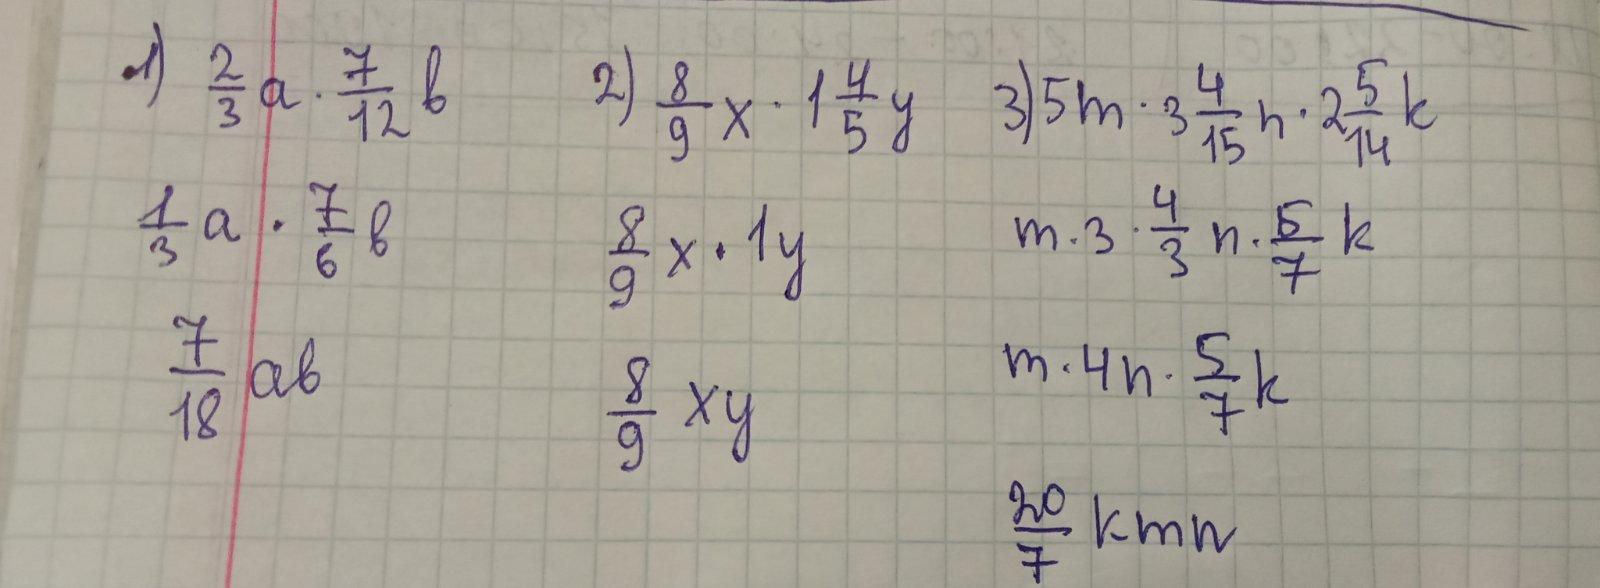 1) 2/3 a · 7/12 b
1/3 a · 7/6 b
7/18 ab
2) 8/9 x · 1 4/5 y
8/9 x · 1y
8/9 xy
3) 5m · 3 4/15 n · 2 5/14 k
m · 3 · 4/3 n · 5/7 k
m · 4n · 5/7 k
20/7 kmn